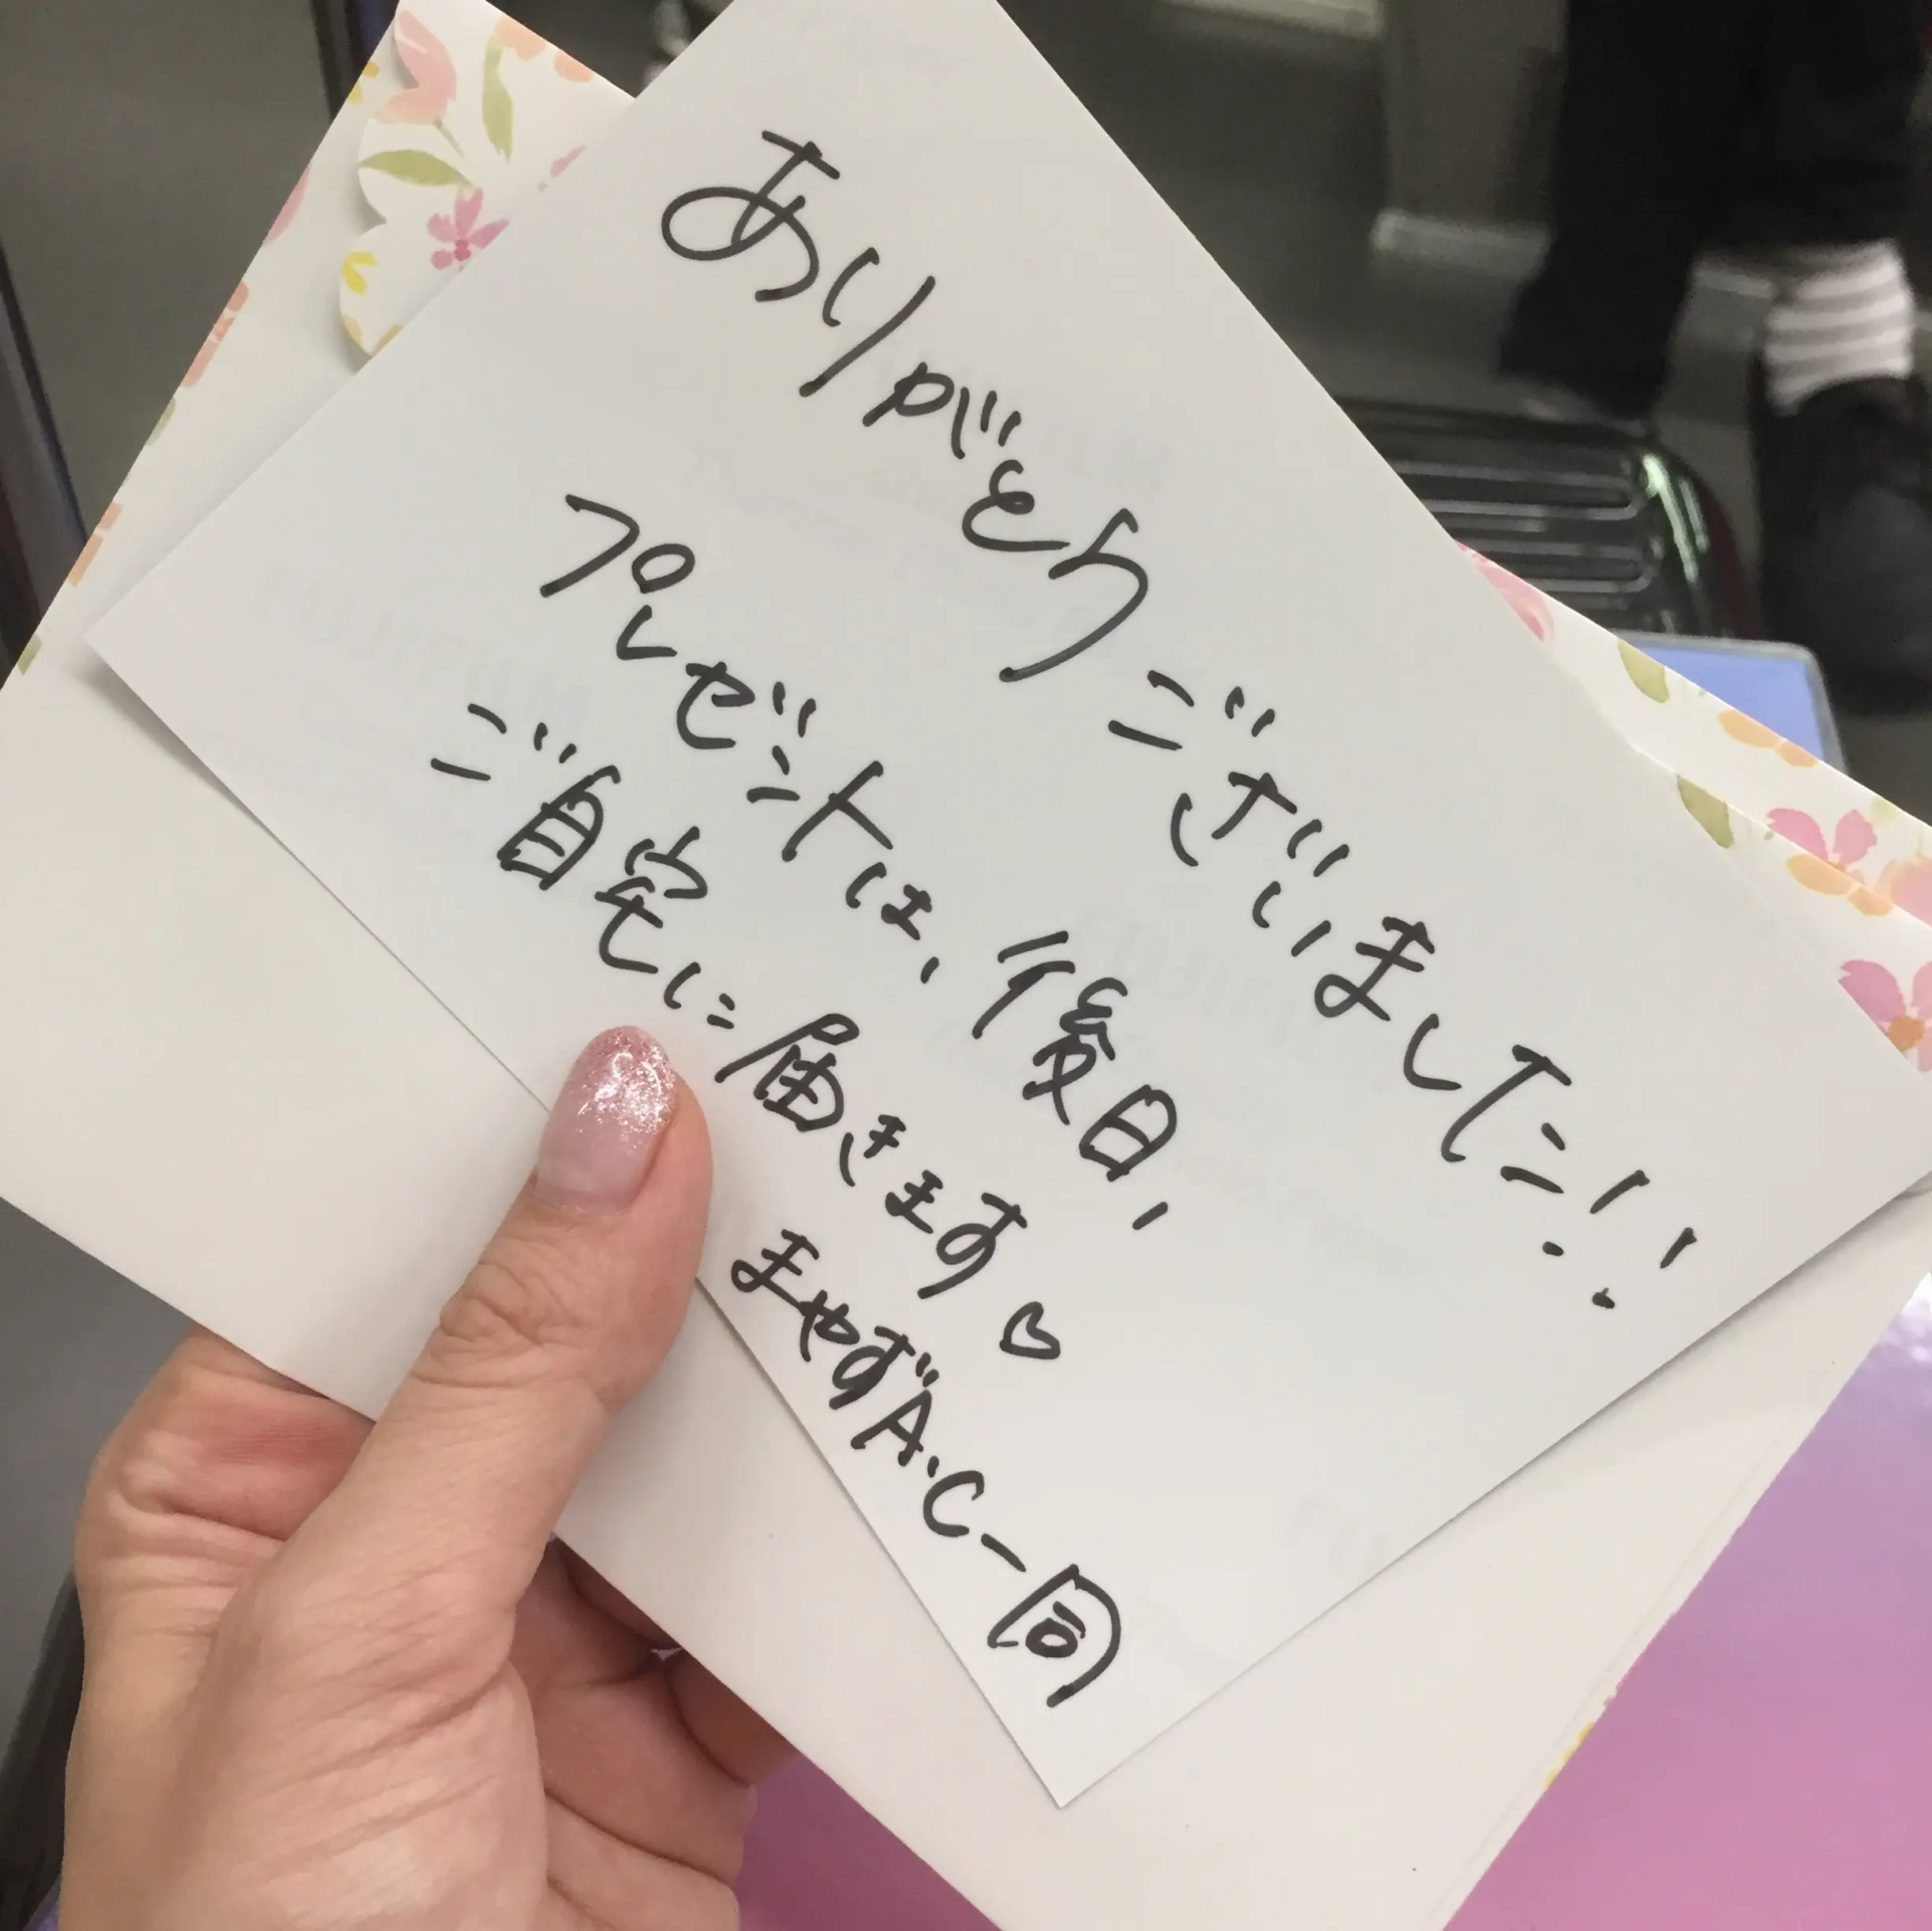 ありがとうございました!!
プレゼントは、後日、
ご自宅に届きます♡
まやずA・C一同